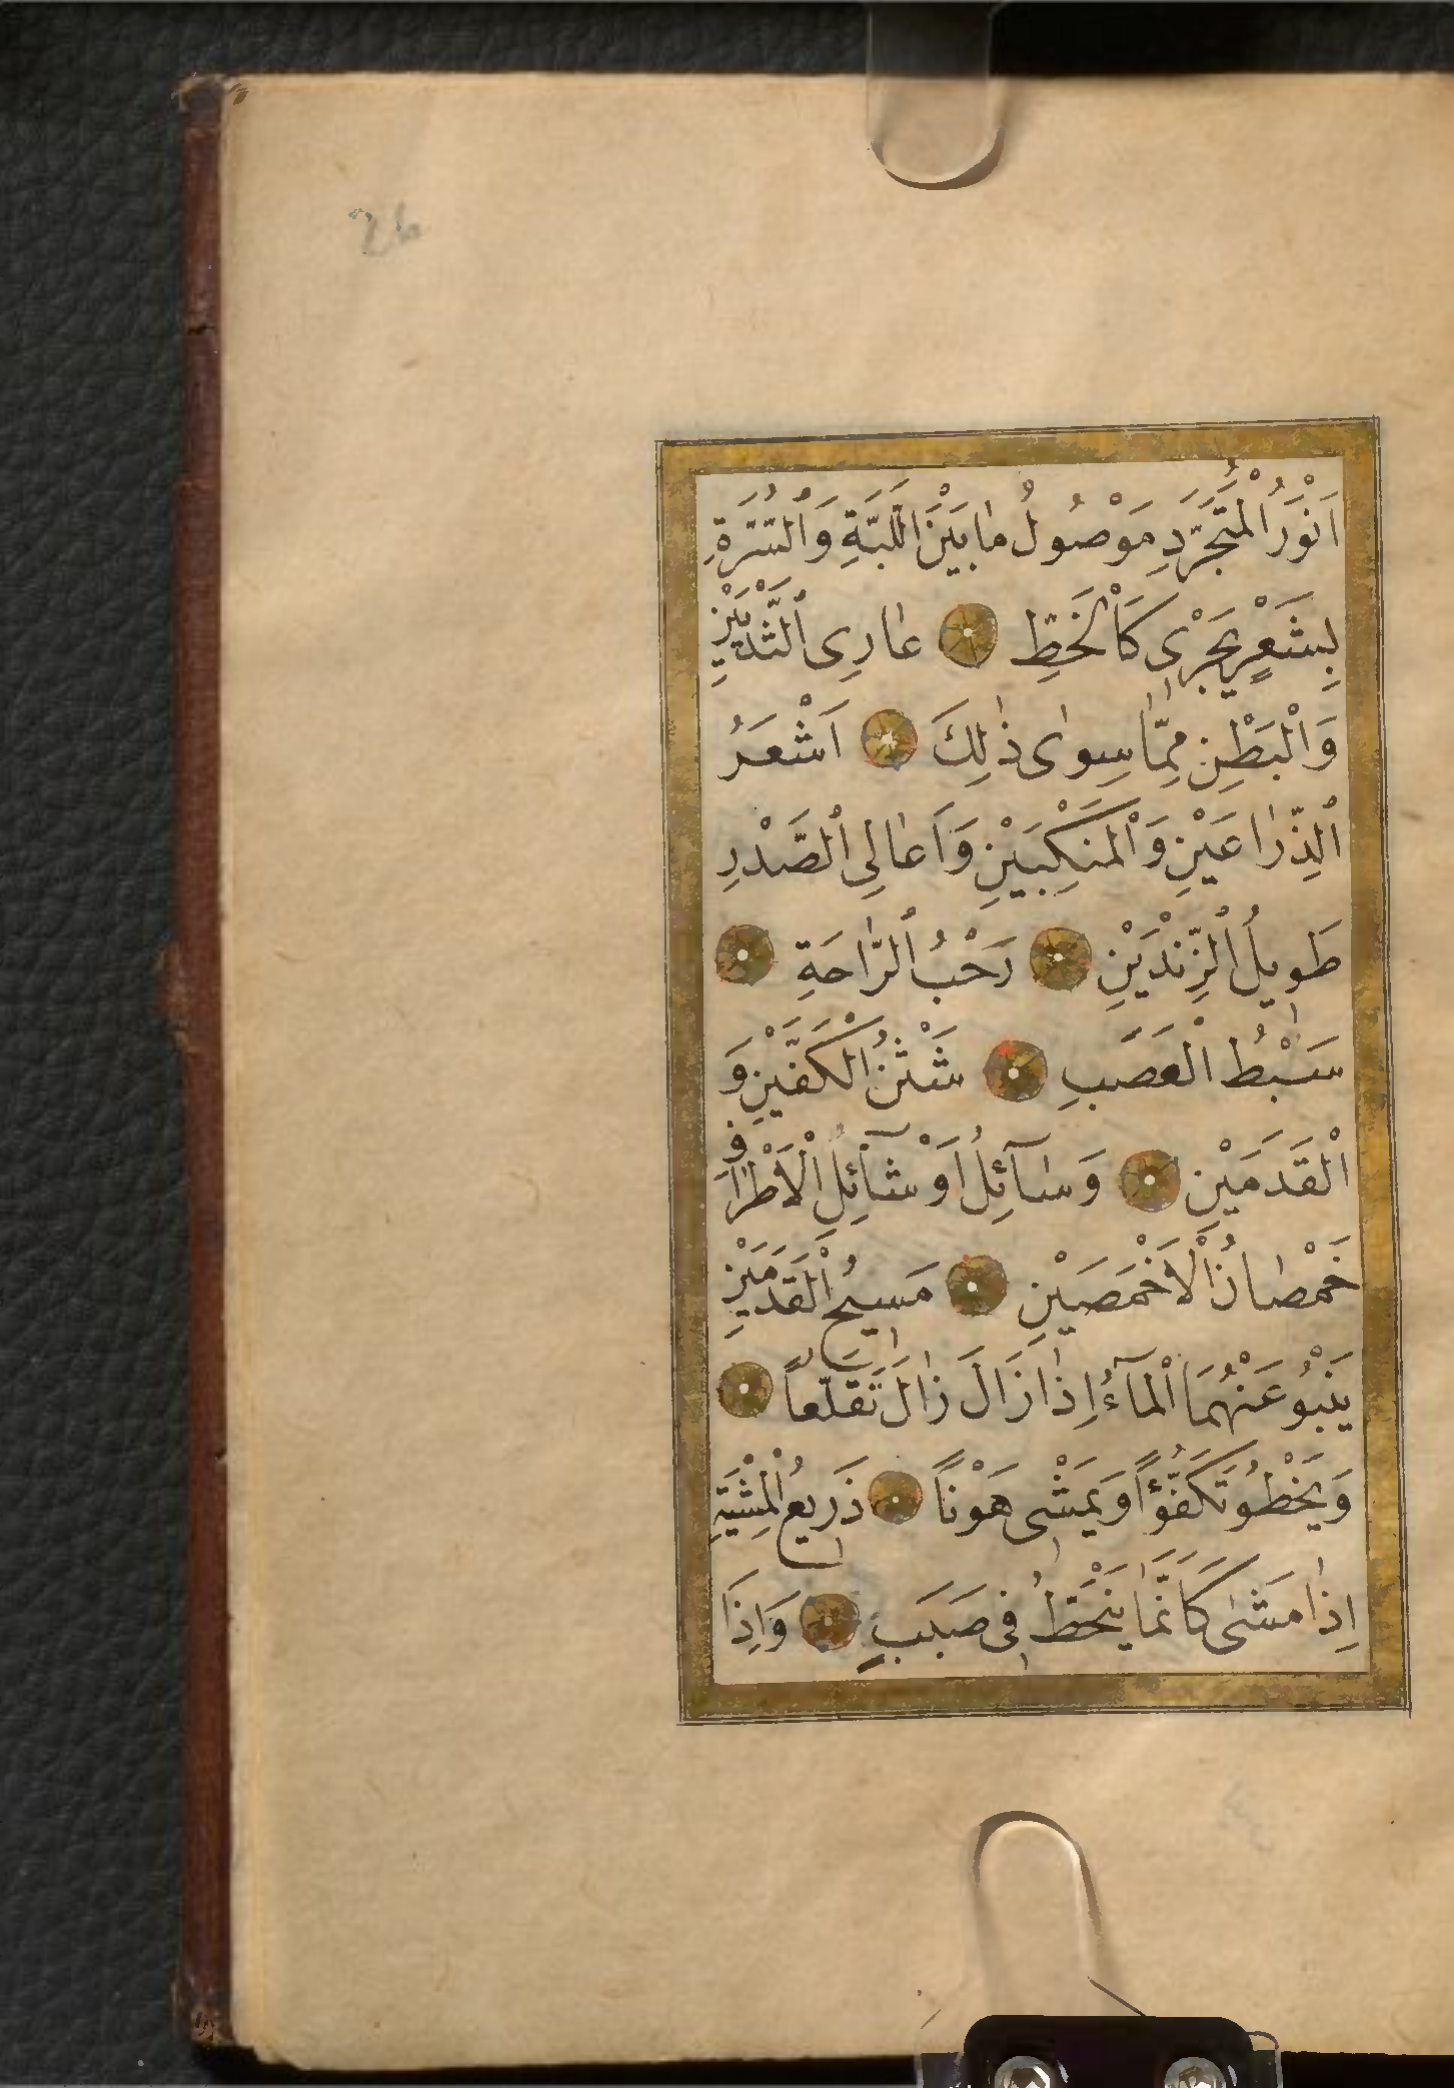 26
اَنْوَرُ الْمُتَجَرَّدِ مَوْصُولُ مٰا بَيْنَ اللَّبَّةِ وَالسُّرَّةِ
بِشَعْرٍ يَجْرٖى كَالْخَطِّ عٰارِى الثَّدْيَيْنِ
وَالْبَطْنِ مِمّٰا سِوٰى ذٰلِكَ اَشْعَرُ
الذِّرٰاعَيْنِ وَالْمَنْكِبَيْنِ وَاَعٰالِى الصَّدْرِ
طَوٖيلُ الزَّنْدَيْنِ رَحْبُ الرّٰاحَةِ
سَبْطُ الْعَصَبِ شَثْنُ الْكَفَّيْنِ وَ
الْقَدَمَيْنِ وَسٰآئِلُ اَوْ شٰآئِلُ الْاَطْرٰافِ
خَمْصٰانُ الْاَخْمَصَيْنِ مَسٖيحُ الْقَدَمَيْنِ
يَنْبُو عَنْهُمَا الْمٰآءُ اِذٰا زَالَ زٰالَ تَقَلُّعاً
وَيَخْطُو تَكَفُّؤًا وَيَمْشٖى هَوْنًا ذَرٖيعُ الْمِشْيَةِ
اِذٰا مَشٰى كَاَنَّمٰا يَنْحَطُّ فٖى صَبَبٍ وَاِذَا